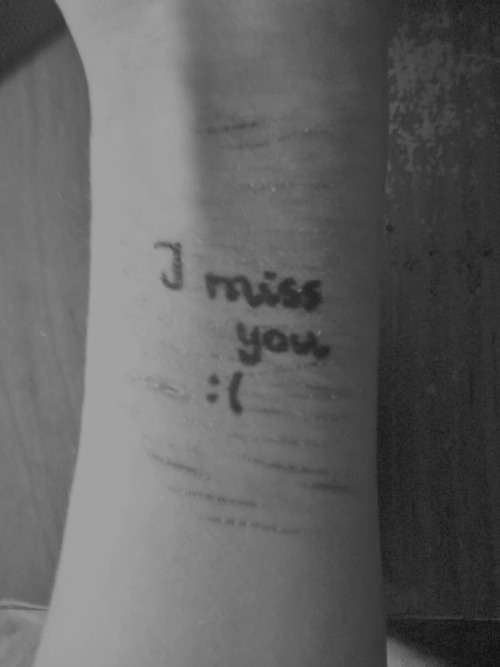 I miss
you
:(